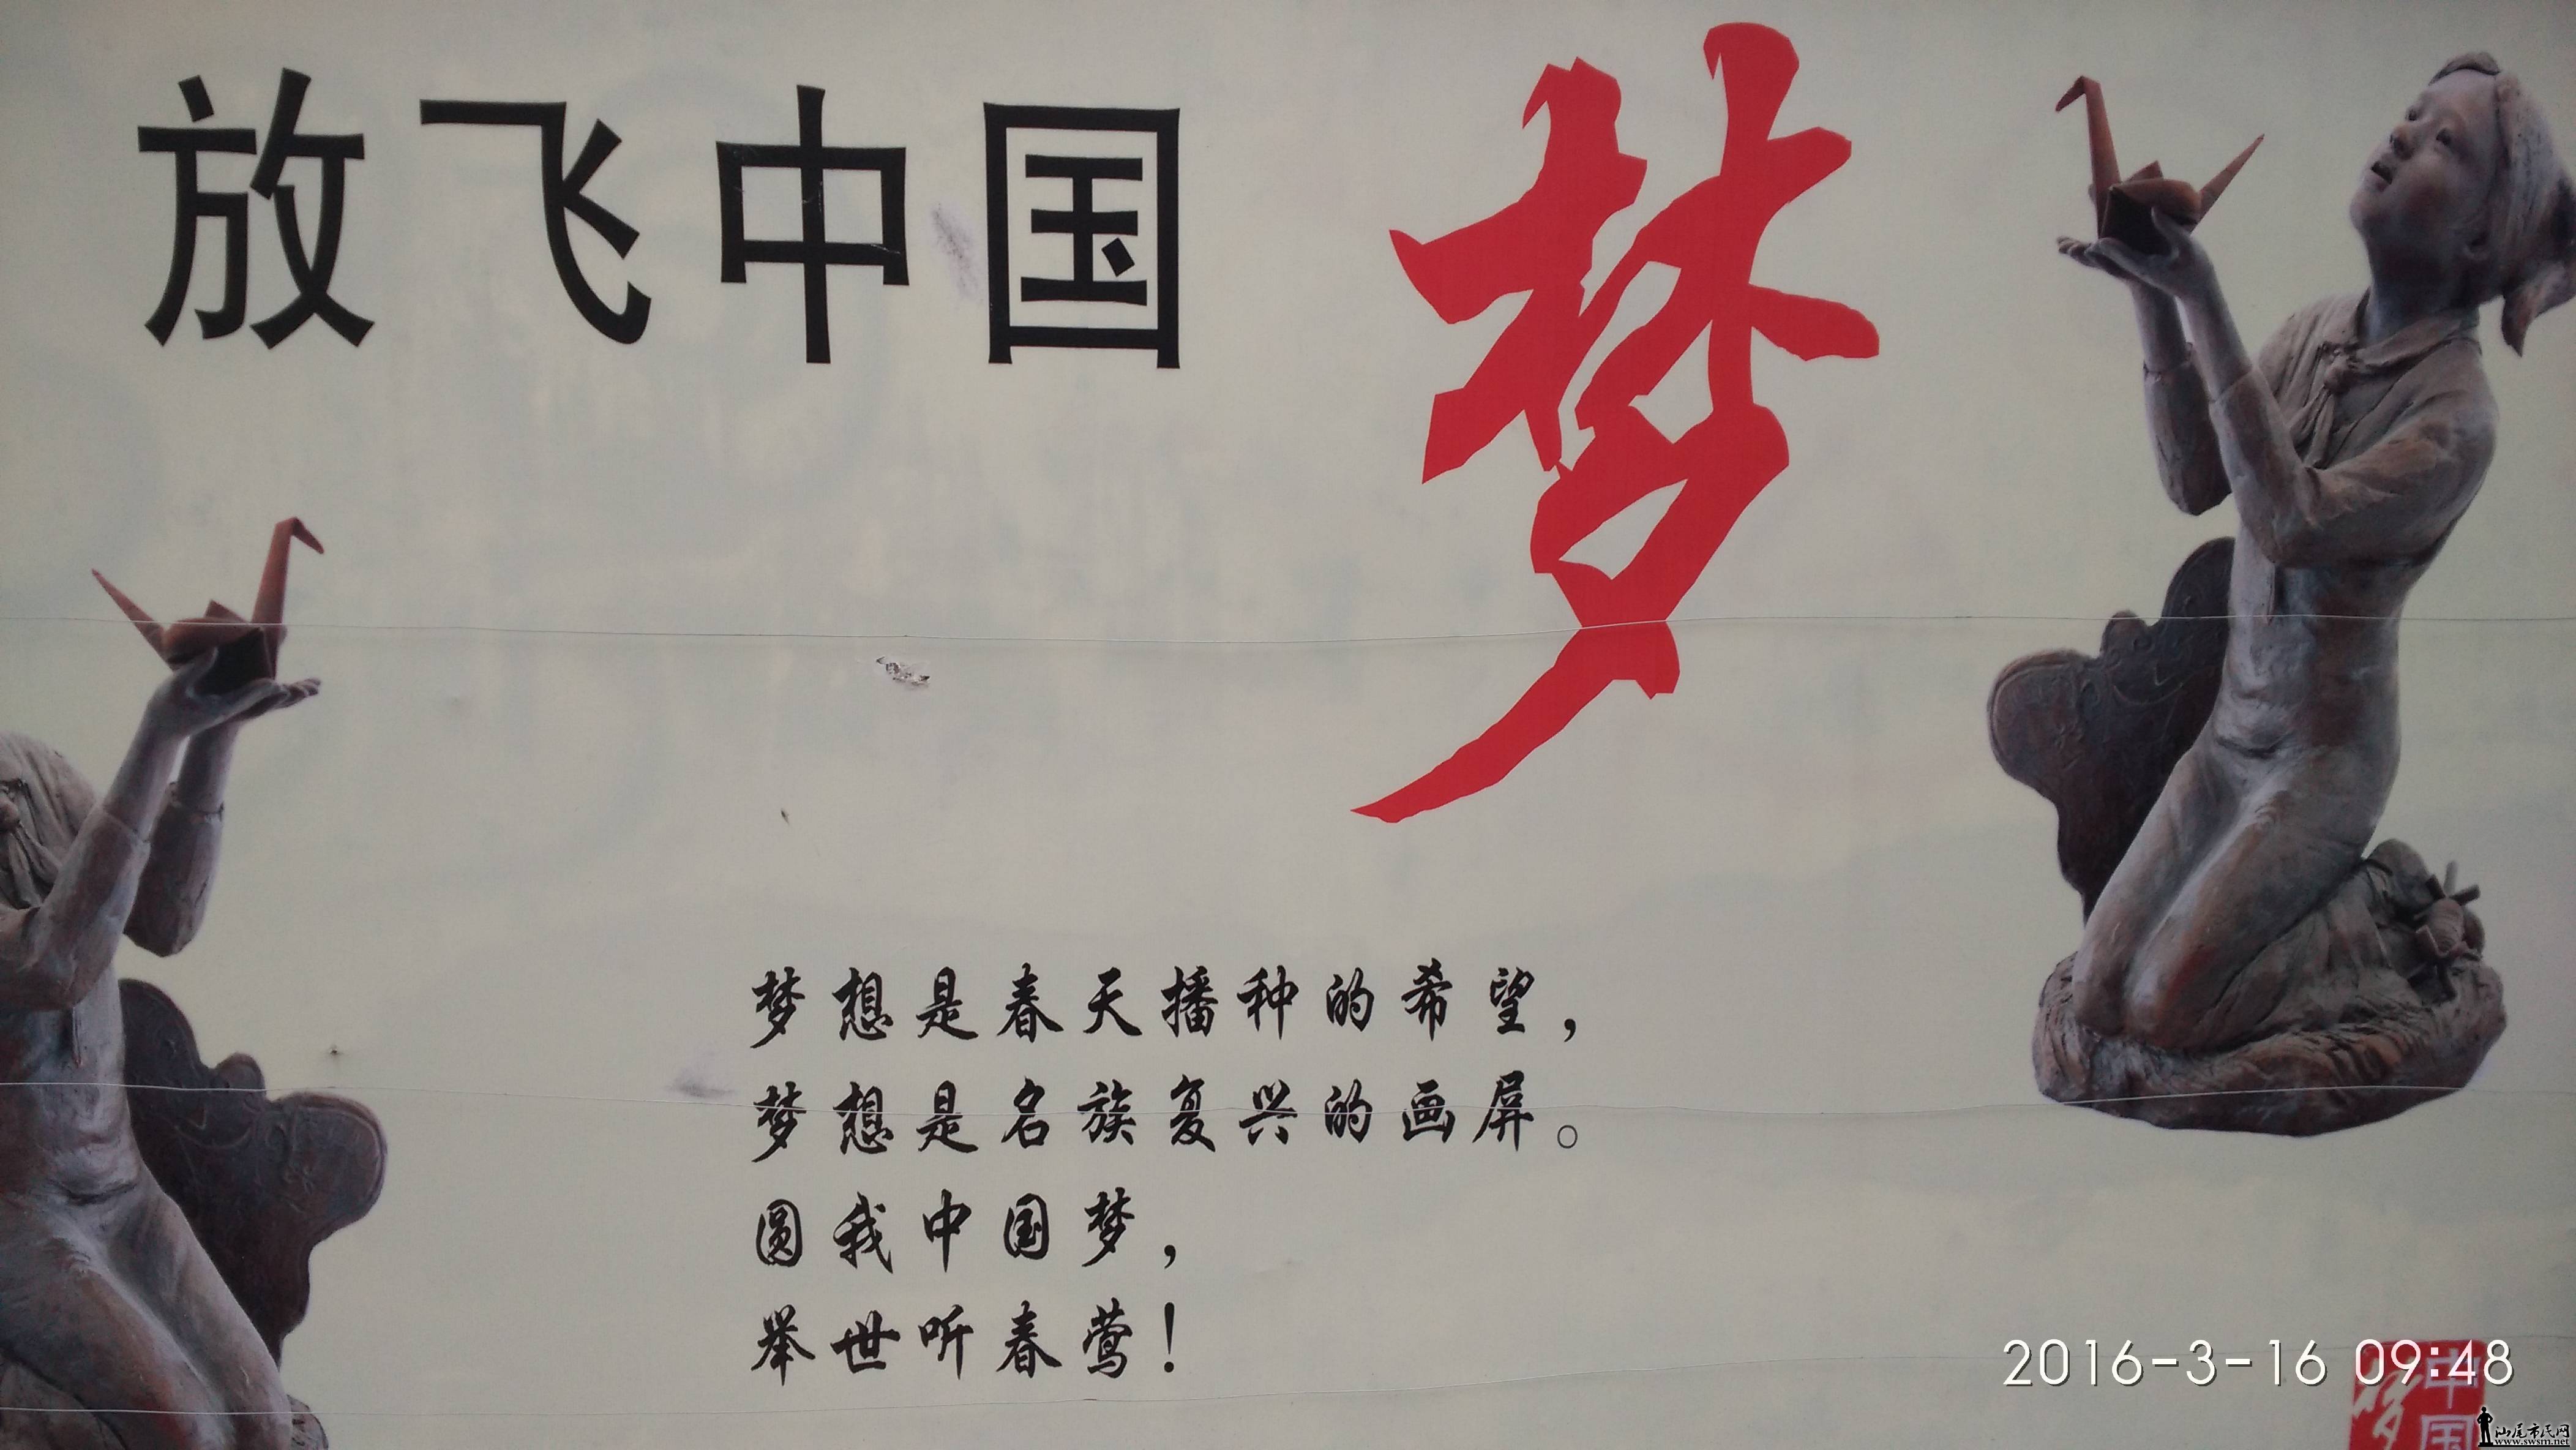 放飞中国梦
梦想是春天播种的希望，
梦想是名族复兴的画屏。
圆我中国梦，
举世听春莺！
2016-3-16 09:48
中国
梦
汕尾市民网
www.swsm.net